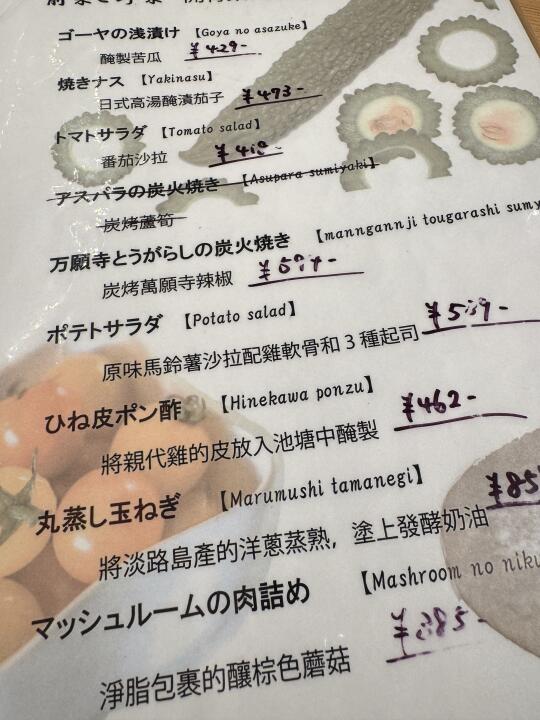 ゴーヤの浅漬け 【Goya no asazuke】
醃製苦瓜 ¥429-
焼きナス 【Yakinasu】
日式高湯醃漬茄子 ¥473-
トマトサラダ 【Tomato salad】
番茄沙拉
アスパラの炭火焼き 【Asupara sumiyaki】
炭烤蘆筍
万願寺とうがらしの炭火焼き 【manngannji tougarashi sumy
炭烤萬願寺辣椒
ポテトサラダ 【Potato salad】
原味馬鈴薯沙拉配雞軟骨和3種起司 ¥539-
ひね皮ポン酢 【Hinekawa ponzu】
將親代雞的皮放入池塘中醃製 ¥462-
丸蒸し玉ねぎ 【Marumushi tamanegi】
將淡路島產的洋蔥蒸熟，塗上發酵奶油
マッシュルームの肉詰め 【Mashroom no niku
淨脂包裹的釀棕色蘑菇